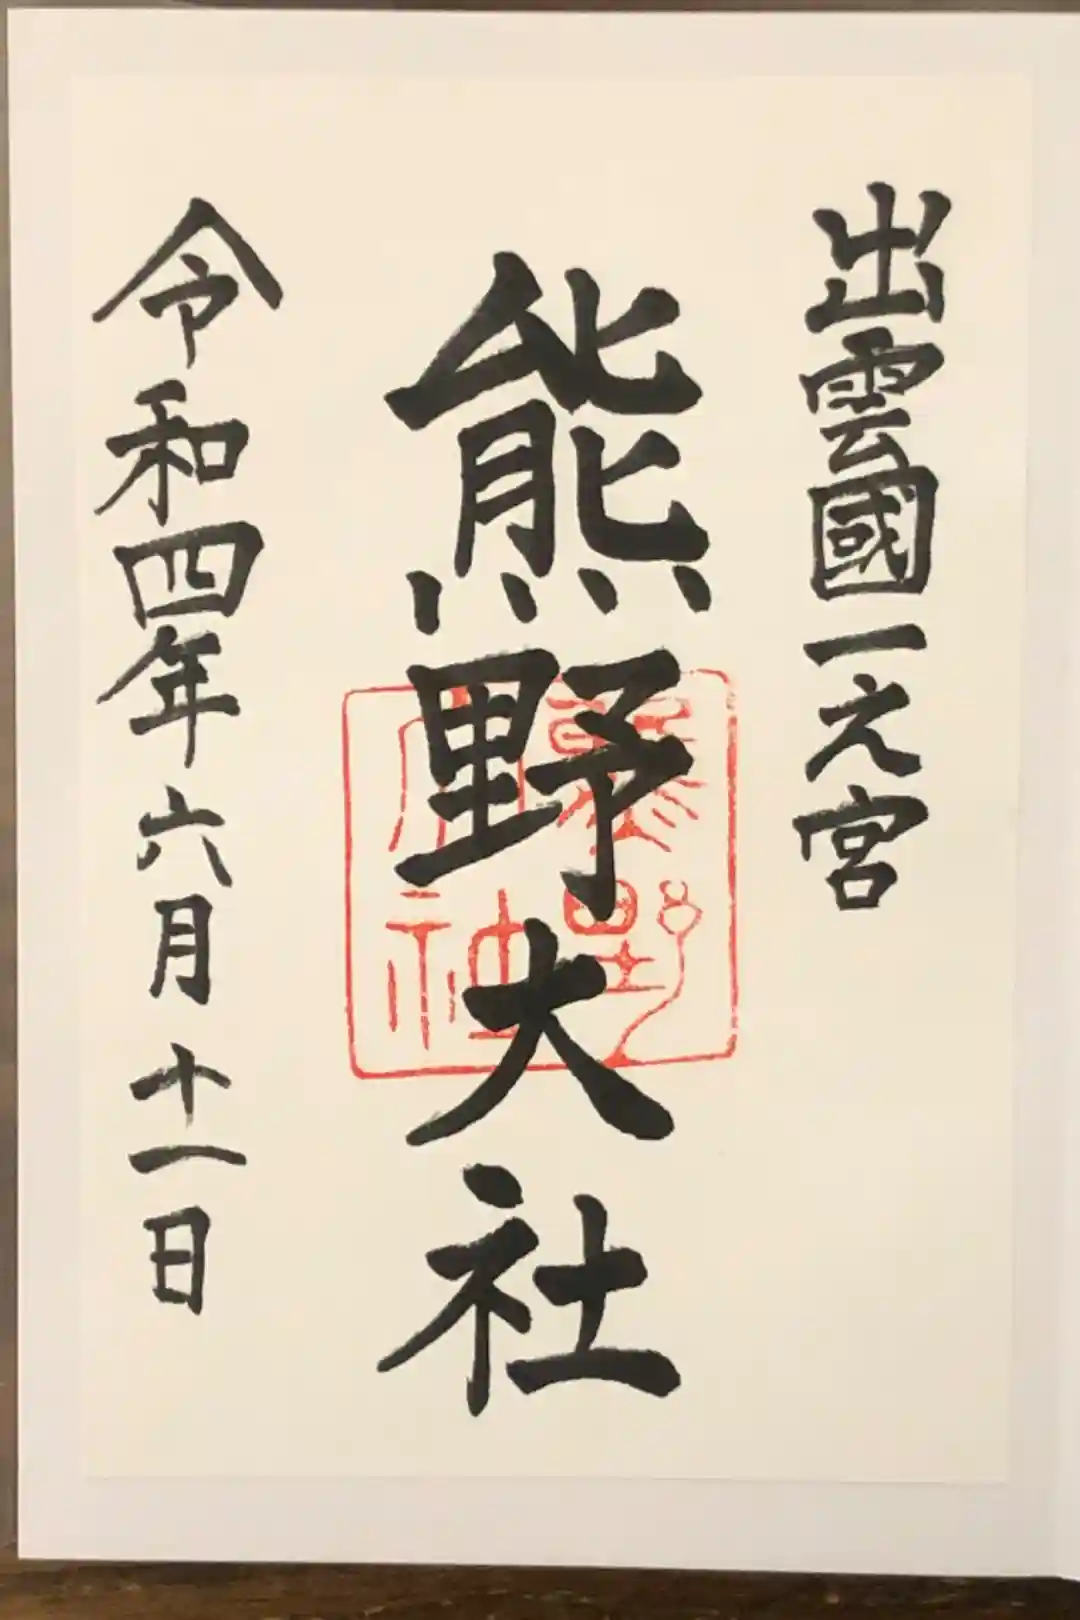 出雲國一之宮
熊野大社
熊野大社
令和四年六月十一日